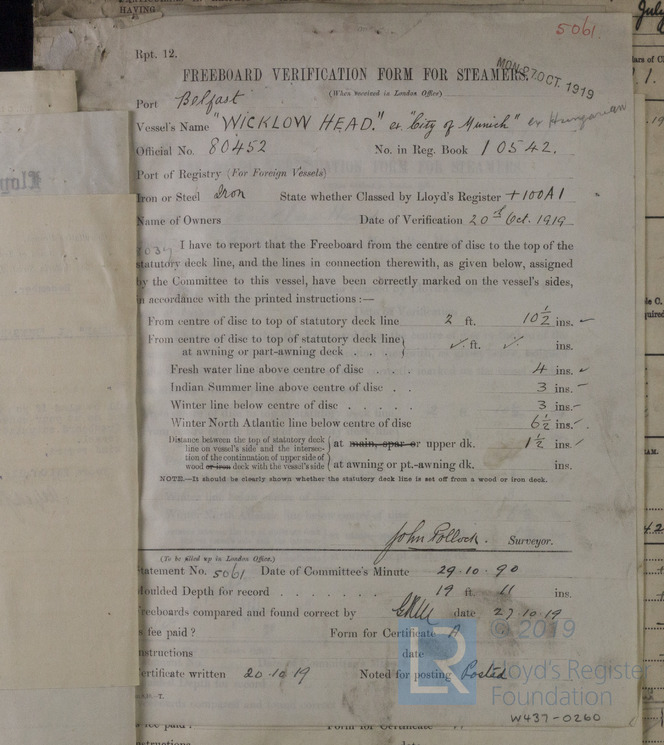 HAVING
5061.
Rpt. 12.
MON. 27 OCT. 1919
FREEBOARD VERIFICATION FORM FOR STEAMERS.
(When received in London Office)
Port Belfast
Vessel's Name "WICKLOW HEAD." ex "City of Munich" ex Hungarian
Official No. 80452 No. in Reg. Book 10542.
Port of Registry (For Foreign Vessels)
Iron or Steel Iron State whether Classed by Lloyd's Register +100A1
Name of Owners Date of Verification 20th Oct. 1919
I have to report that the Freeboard from the centre of disc to the top of the
statutory deck line, and the lines in connection therewith, as given below, assigned
by the Committee to this vessel, have been correctly marked on the vessel's sides,
in accordance with the printed instructions :—
From centre of disc to top of statutory deck line 2 ft. 10 1/2 ins. ✓
From centre of disc to top of statutory deck line
at awning or part-awning deck . . . ✓ ft. ✓ ins.
Fresh water line above centre of disc . . . 4 ins. ✓
Indian Summer line above centre of disc . . 3 ins.
Winter line below centre of disc . . . . . 3 ins.
Winter North Atlantic line below centre of disc 6 1/2 ins.
Distance between the top of statutory deck
line on vessel's side and the intersec-
tion of the continuation of upper side of
wood or iron deck with the vessel's side
at main, spar or upper dk. 1 1/2 ins.
at awning or pt.-awning dk. ins.
NOTE.—It should be clearly shown whether the statutory deck line is set off from a wood or iron deck.
John Pollock. Surveyor.
(To be filled up in London Office.)
Statement No. 5061 Date of Committee's Minute 29.10.90
Moulded Depth for record . . . . . . . 19 ft. 11 ins.
Freeboards compared and found correct by date 27.10.19
Is fee paid? Form for Certificate A
Instructions date
Certificate written 20.10.19 Noted for posting Posted
LR
© 2019
Lloyd's Register
Foundation
W437-0260
is fee paid? Form for Certificate
structions date